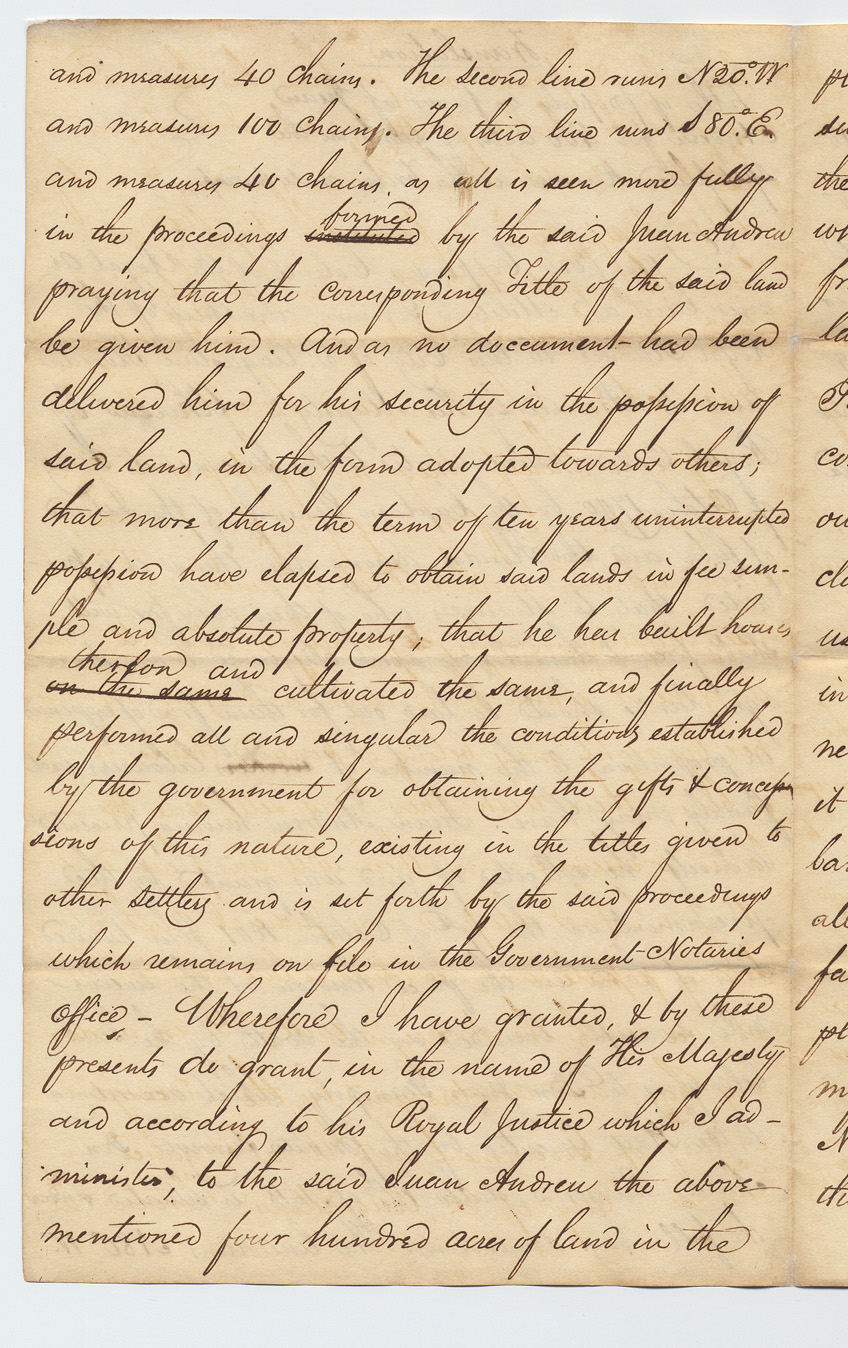 and measures 40 chains. The second line runs N20°.W
and measures 100 chains. The third line runs S80°.E.
and measures 40 chains, as all is seen more fully
formed
in the proceedings instituted by the said Juan Andreu
praying that the corresponding Title of the said land
be given him. And as no doccument had been
delivered him for his security in the possession of
said land, in the form adopted towards others;
that more than the term of ten years uninterrupted
possession have elapsed to obtain said lands in fee sim-
ple and absolute property; that he has built houses
thereon and
on the same cultivated the same, and finally
performed all and singular the conditions established
by the government for obtaining the gifts & conces-
sions of this nature, existing in the titles given to
other settlers and is set forth by the said proceedings
which remains on file in the Government Notaries
office - Wherefore I have granted, & by these
presents do grant, in the name of His Majesty
and according to his Royal Justice which I ad-
minister, to the said Juan Andreu the above
mentioned four hundred acres of land in the